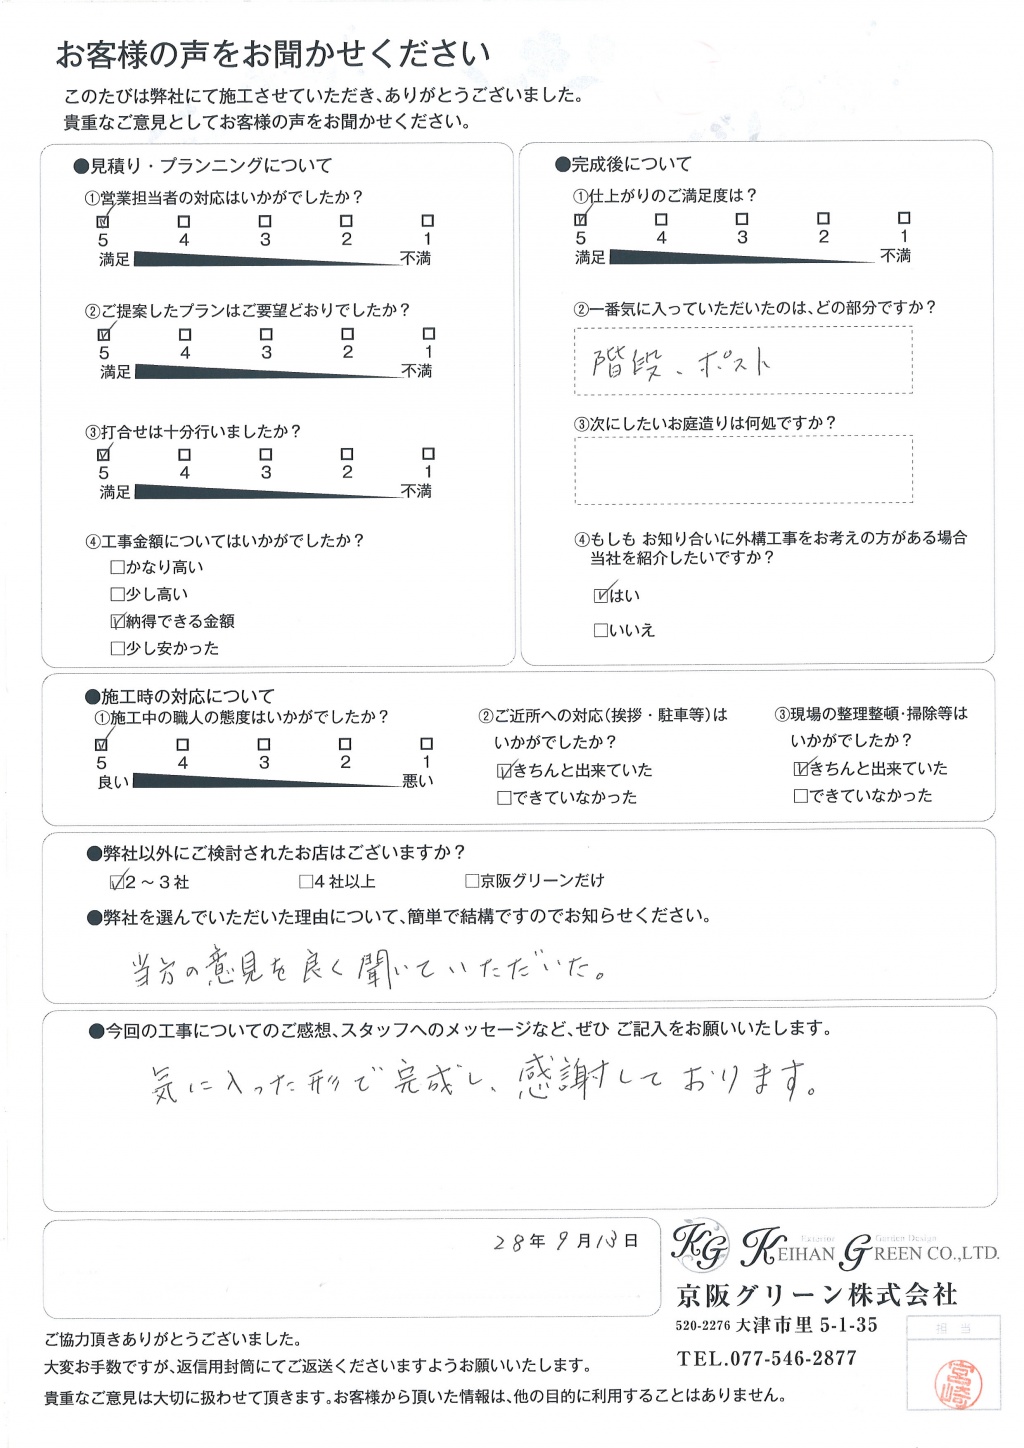 お客様の声をお聞かせください
このたびは弊社にて施工させていただき、ありがとうございました。
貴重なご意見としてお客様の声をお聞かせください。
●見積り・プランニングについて
①営業担当者の対応はいかがでしたか？
☑ □ □ □ □
5 4 3 2 1
満足 不満
②ご提案したプランはご要望どおりでしたか？
☑ □ □ □ □
5 4 3 2 1
満足 不満
③打合せは十分行いましたか？
☑ □ □ □ □
5 4 3 2 1
満足 不満
④工事金額についてはいかがでしたか？
□かなり高い
□少し高い
☑納得できる金額
□少し安かった
●完成後について
①仕上がりのご満足度は？
☑ □ □ □ □
5 4 3 2 1
満足 不満
②一番気に入っていただいたのは、どの部分ですか？
階段、ポスト
③次にしたいお庭造りは何処ですか？
④もしも お知り合いに外構工事をお考えの方がある場合
当社を紹介したいですか？
☑はい
□いいえ
●施工時の対応について
①施工中の職人の態度はいかがでしたか？
☑ □ □ □ □
5 4 3 2 1
良い 悪い
②ご近所への対応（挨拶・駐車等）は
いかがでしたか？
☑きちんと出来ていた
□できていなかった
③現場の整理整頓・掃除等は
いかがでしたか？
☑きちんと出来ていた
□できていなかった
●弊社以外にご検討されたお店はございますか？
☑2～3社 □4社以上 □京阪グリーンだけ
●弊社を選んでいただいた理由について、簡単で結構ですのでお知らせください。
当方の意見を良く聞いていただいた。
●今回の工事についてのご感想、スタッフへのメッセージなど、ぜひ ご記入をお願いいたします。
気に入った形で完成し、感謝しております。
28年9月13日
KG Exterior Garden Design
KEIHAN GREEN CO.,LTD.
京阪グリーン株式会社
520-2276 大津市里 5-1-35
TEL.077-546-2877
担当
宮崎
ご協力頂きありがとうございました。
大変お手数ですが、返信用封筒にてご返送くださいますようお願いいたします。
貴重なご意見は大切に扱わせて頂きます。お客様から頂いた情報は、他の目的に利用することはありません。